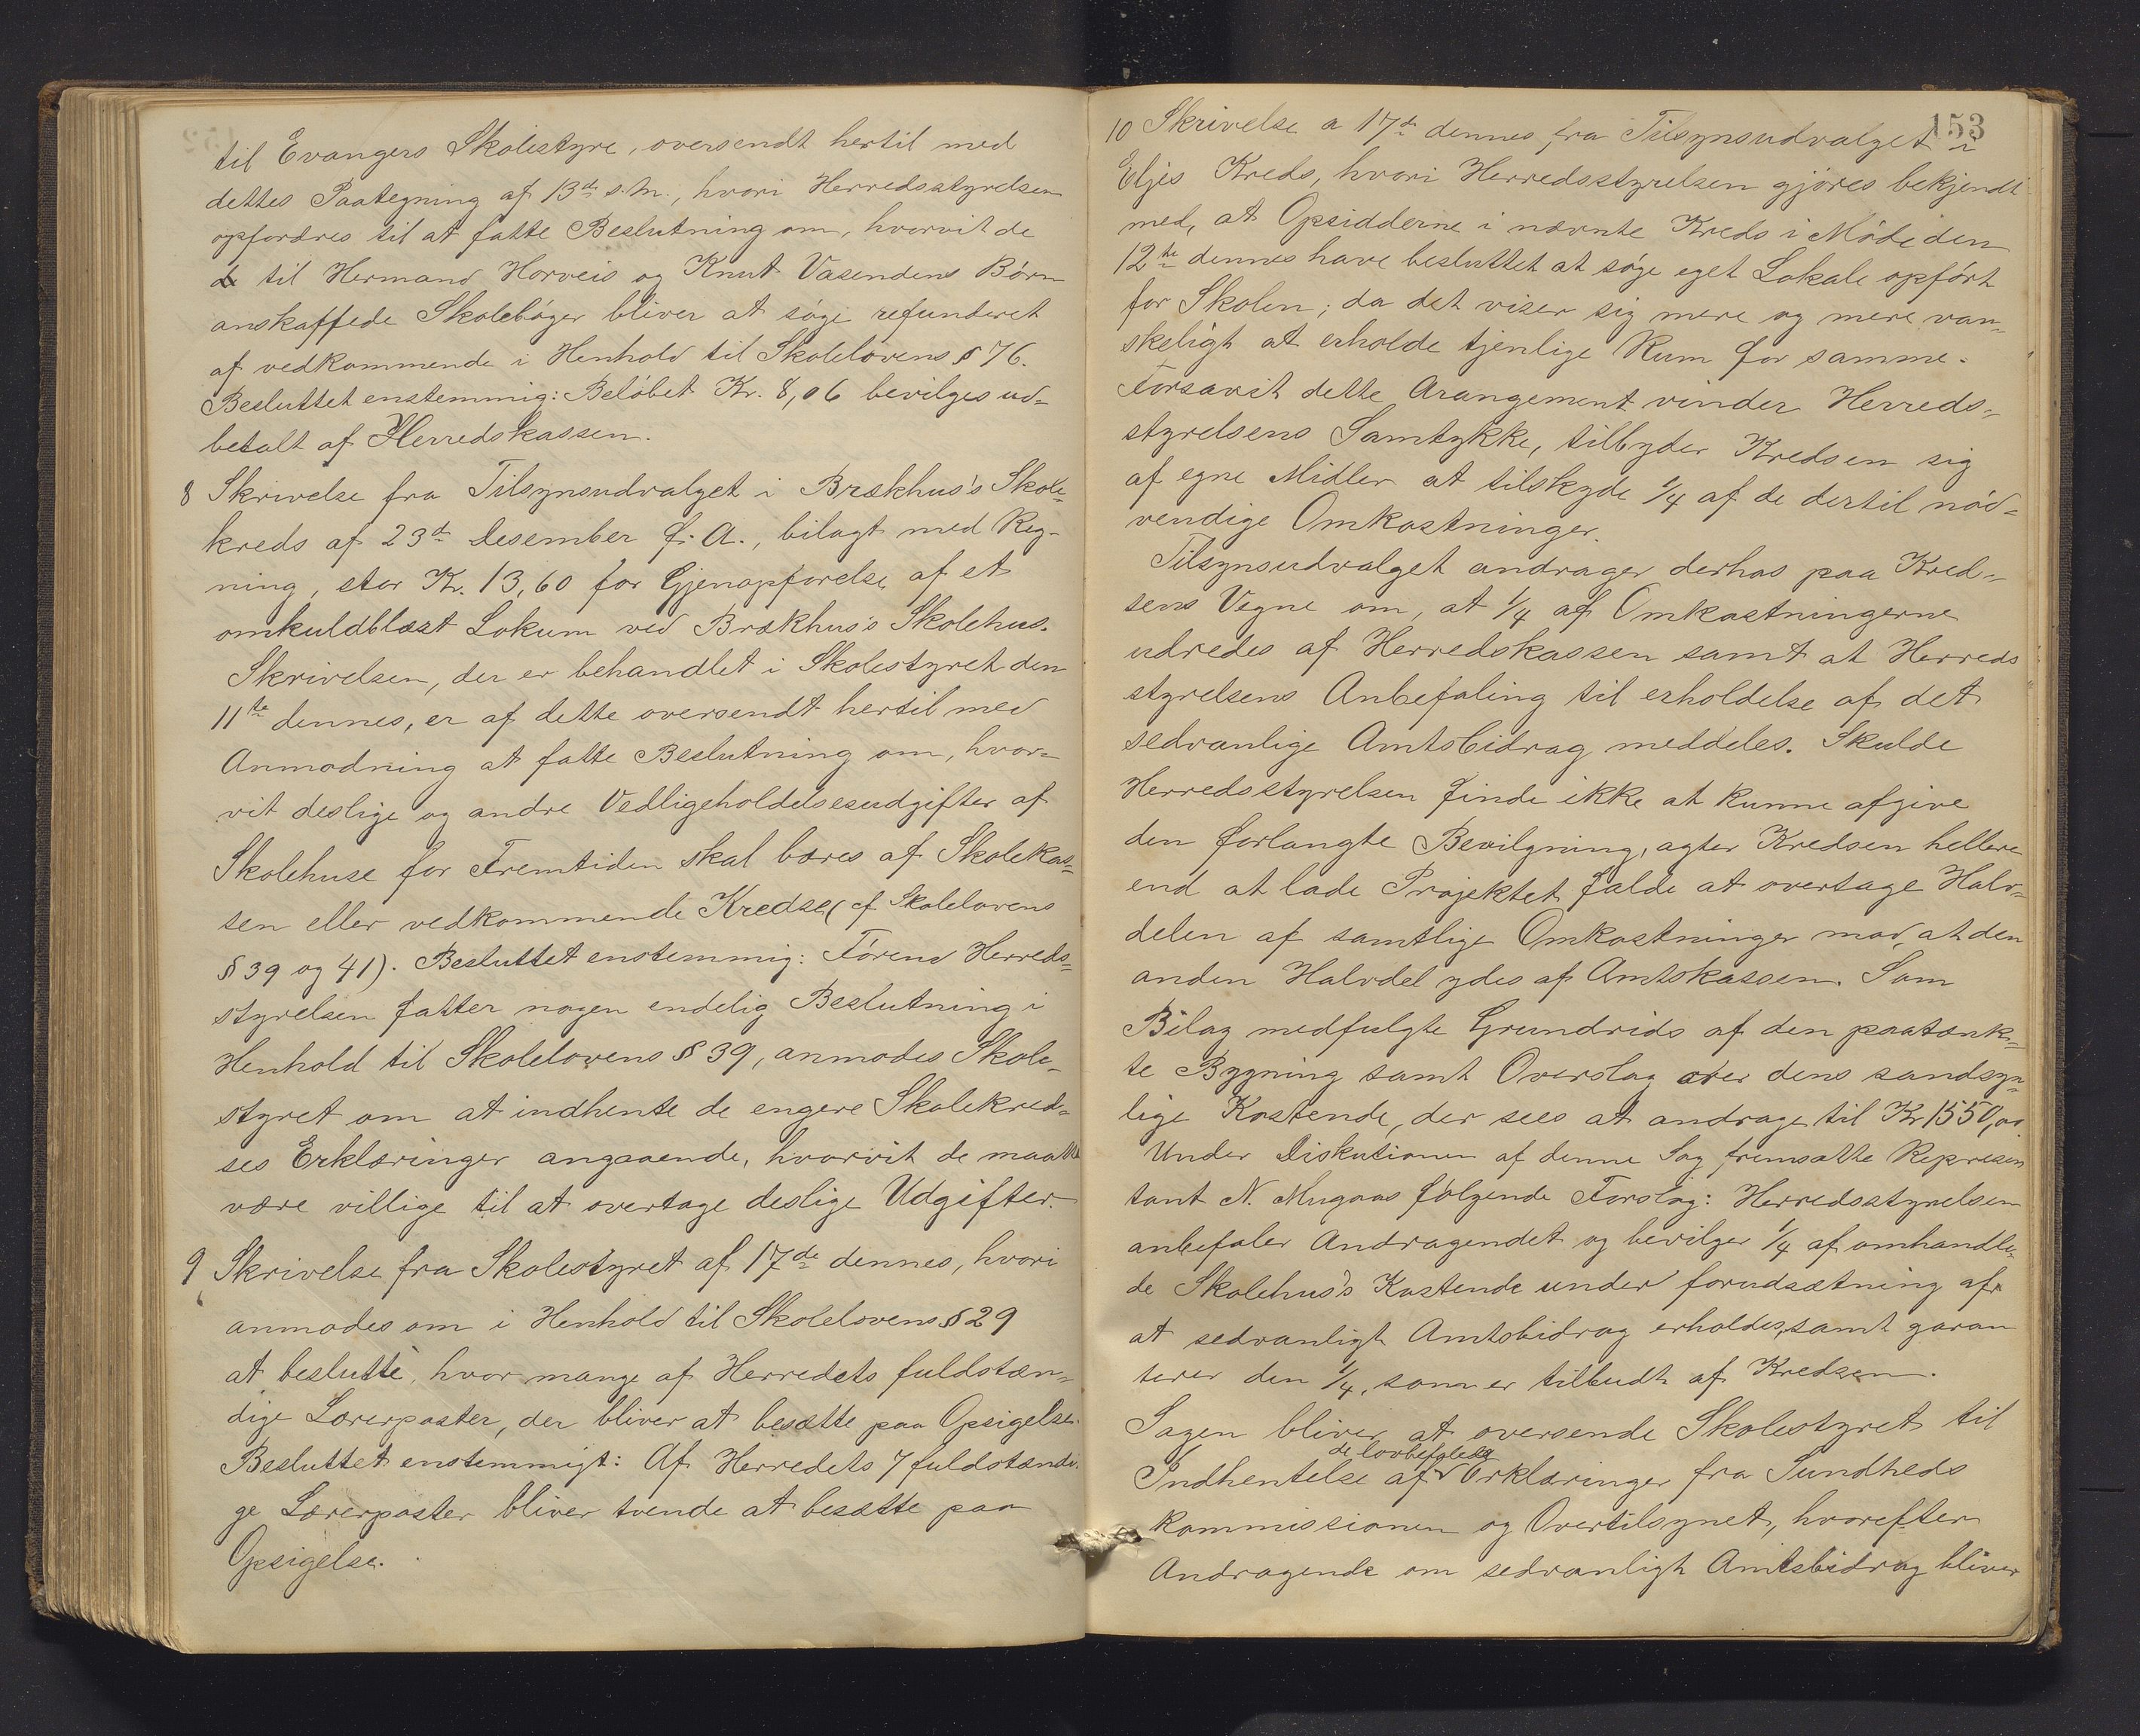 til Evangers Skolestyre, oversendt hertil med
dettes Paategning af 13de s. M., hvori Herredsstyrelsen
opfordres til at fatte Beslutning om, hvorvit de
til Hermand Horveis og Knut Vasendens Børn
anskaffede Skolebøger bliver at søge refunderet
af vedkommende i Henhold til Skolelovens § 76.
Besluttet enstemmig: Beløbet Kr. 8,06 bevilges ud=
betalt af Herredskassen.
8 Skrivelse fra Tilsynsudvalget i Brækhus's Skole-
kreds af 23de Desember f. A., bilagt med Reg-
ning, stor Kr. 13,60 for Gjenopførelse af et
omkuldblæst Lokum ved Brækhus's Skolehus.
Skrivelsen, der er behandlet i Skolestyret den
11te dennes, er af dette oversendt hertil med
Anmodning at fatte Beslutning om, hvor=
vit deslige og andre Vedligeholdelsesudgifter af
Skolehuse for Fremtiden skal bæres af Skolekas=
sen eller vedkommende Kredse (cf Skolelovens
§ 39 og 41). Besluttet enstemmig: Førend Herreds=
styrelsen fatter nogen endelig Beslutning i
Henhold til Skolelovens § 39, anmodes Skole-
styret om at indhente de engere Skolekred=
ses Erklæringer angaaende, hvorvit de maatte
være villige til at overtage deslige Udgifter.
9 Skrivelse fra Skolestyret af 17de dennes, hvori
anmodes om i Henhold til Skolelovens § 29
at beslutte, hvor mange af Herredets fuldstæn=
dige Lærerposter, der bliver at besætte paa Opsigelse.
Besluttet enstemmigt: Af Herredets 7 fuldstændi-
ge Lærerposter bliver tvende at besætte paa
Opsigelse.
153
10 Skrivelse a 17de dennes fra Tilsynsudvalget i
Eljes Kreds, hvori Herredsstyrelsen gjøres bekjendt
med, at Opsidderne i nævnte Kreds i Møde den
12te dennes have besluttet at søge eget Lokale opført
for Skolen; da det viser sig mere og mere van=
skeligt at erholde tjenlige Rum for samme.
Forsavit dette Arangement vinder Herreds=
styrelsens Samtykke, tilbyder Kredsen sig
af egne Midler at tilskyde 1/4 af de dertil nød=
vendige Omkostninger.
Tilsynsudvalget andrager derhos paa Kred=
sens Vegne om, at 1/4 af Omkostningerne
udredes af Herredskassen samt at Herreds
styrelsens Anbefaling til erholdelse af det
sedvanlige Amtsbidrag meddeles. Skulde
Herredsstyrelsen finde ikke at kunne afgive
den forlangte Bevilgning, agter Kredsen hellere
end at lade Projektet falde at overtage Halv=
delen af samtlige Omkostninger mod, at den
anden Halvdel ydes af Amtskassen. Som
Bilag medfulgte Grundrids af den paatænk=
te Bygning samt Overslag over dens sandsyn=
lige Kostende, der sees at andrage til Kr 1550,00.
Under Diskutionen af denne Sag fremsatte Represen
tant N. Mugaas følgende Forslag: Herredsstyrelsen
anbefaler Andragendet og bevilger 1/4 af omhandle-
de Skolehus's Kostende under forudsætning af
at sedvanligt Amtsbidrag erholdes, samt garan
terer den 1/4, som er tilbudt af Kredsen.
Sagen bliver at oversende Skolestyret til
Indhentelse af de lovbefalede Erklæringer fra Sundheds
kommissionen og Overtilsynet, hvorefter
Andragende om sedvanligt Amtsbidrag bliver